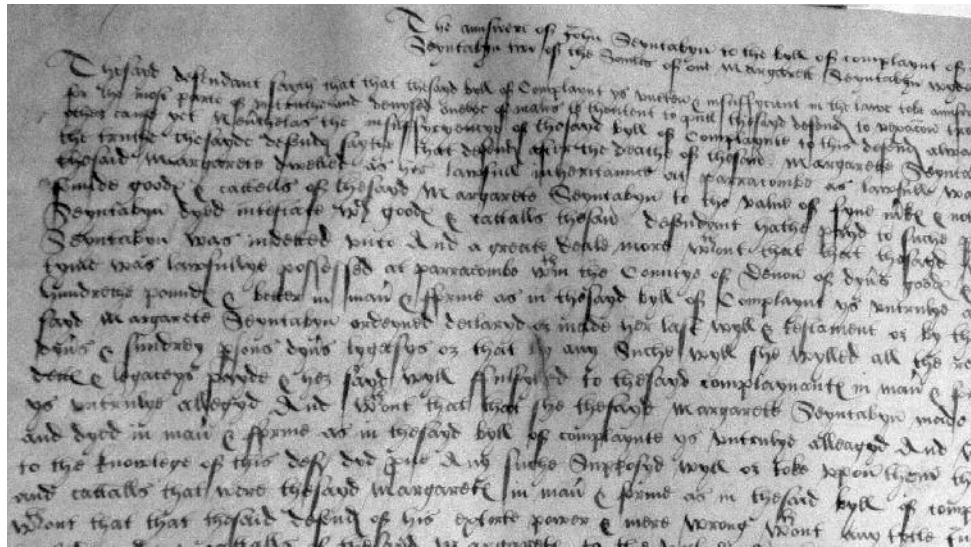 The answere of John Seyntabyn to the byll of complaynt of
Seyntabyn two of the Sonnes of one Margarett Seyntabyn wydo
Thesayd defendant sayth that that thesayd byll of Complaynt ys uncten & insuffycyent in the lawe tobe answ
for the most parte of untruthe and devysed onelye of malis to thentent to putt thesayd defend to
other cause yet Neverthelas the insuffycyentye of thesayd byll of Complaynte to this defend alwa
the truthe thesayde defend saythe that defend after the deathe of thesayd Margarete Seynta
thesaid Margarete dwelled as her lawfull inheritaunce at parracombe as lawfull w
founde good & cattells of thesayd Margarete Seyntabyn to the value of fyve m'ke & not
Seyntabyn dyed intestate wch good & cattalls thesaid defendant hathe payd to suche p
Seyntabyn was indetted unto And a greate deale more wthout that that thesayd
tyme was lawfullye possessed at parracombe wthin the Countye of Devon of dyu's good &
hundrethe pound & better in mau' & fforme as in thesayd byll of Complaynt ys untrulye a
sayd Margarete Seyntabyn ordeyned declaryd or made her last wyll & testament or by th
dyu's & sundrey p'sons dyu's lygasys or that by any Suche wyll she wylled all the re
dett & legaceys payde & her sayd wyll ffulfylled to thesayd complaynant in mau' & fo
ys untrulye allegyd And wthout that that she thesayd Margarete Seyntabyn made
and dyed in mau' & fforme as in thesayd byll of complaynte ys untrulye alleagyd And w
to the knowlege of this deff dyd p've Any suche Supposyd wyll or toke uppon them th
and cattalls that were thesayd Margaret in mau' & forme as in thesaid byll of comp
wthout that that thesaid defend of his extorte power & mere wrong wthout any tytle